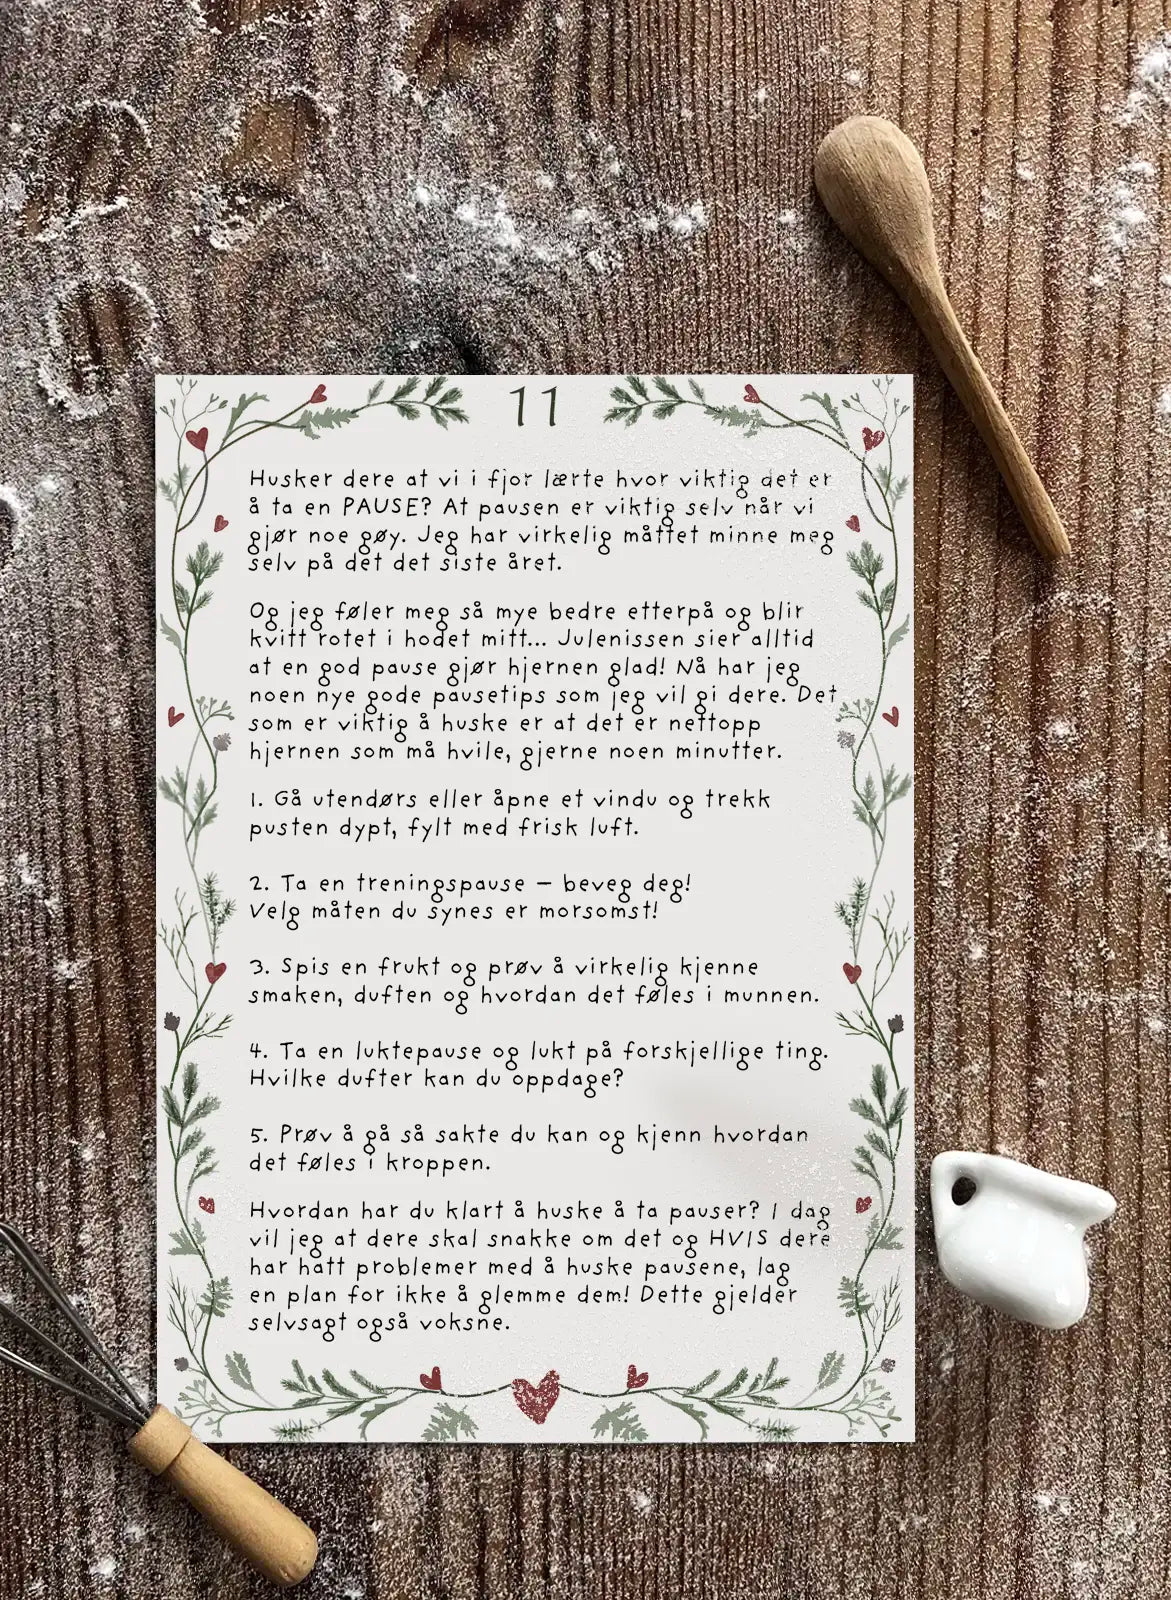 11
Husker dere at vi i fjor lærte hvor viktig det er
å ta en PAUSE? At pausen er viktig selv når vi
gjør noe gøy. Jeg har virkelig måttet minne meg
selv på det det siste året.
Og jeg føler meg så mye bedre etterpå og blir
kvitt rotet i hodet mitt... Julenissen sier alltid
at en god pause gjør hjernen glad! Nå har jeg
noen nye gode pausetips som jeg vil gi dere. Det
som er viktig å huske er at det er nettopp
hjernen som må hvile, gjerne noen minutter.
1. Gå utendørs eller åpne et vindu og trekk
pusten dypt, fylt med frisk luft.
2. Ta en treningspause – beveg deg!
Velg måten du synes er morsomst!
3. Spis en frukt og prøv å virkelig kjenne
smaken, duften og hvordan det føles i munnen.
4. Ta en luktepause og lukt på forskjellige ting.
Hvilke dufter kan du oppdage?
5. Prøv å gå så sakte du kan og kjenn hvordan
det føles i kroppen.
Hvordan har du klart å huske å ta pauser? I dag
vil jeg at dere skal snakke om det og HVIS dere
har hatt problemer med å huske pausene, lag
en plan for ikke å glemme dem! Dette gjelder
selvsagt også voksne.